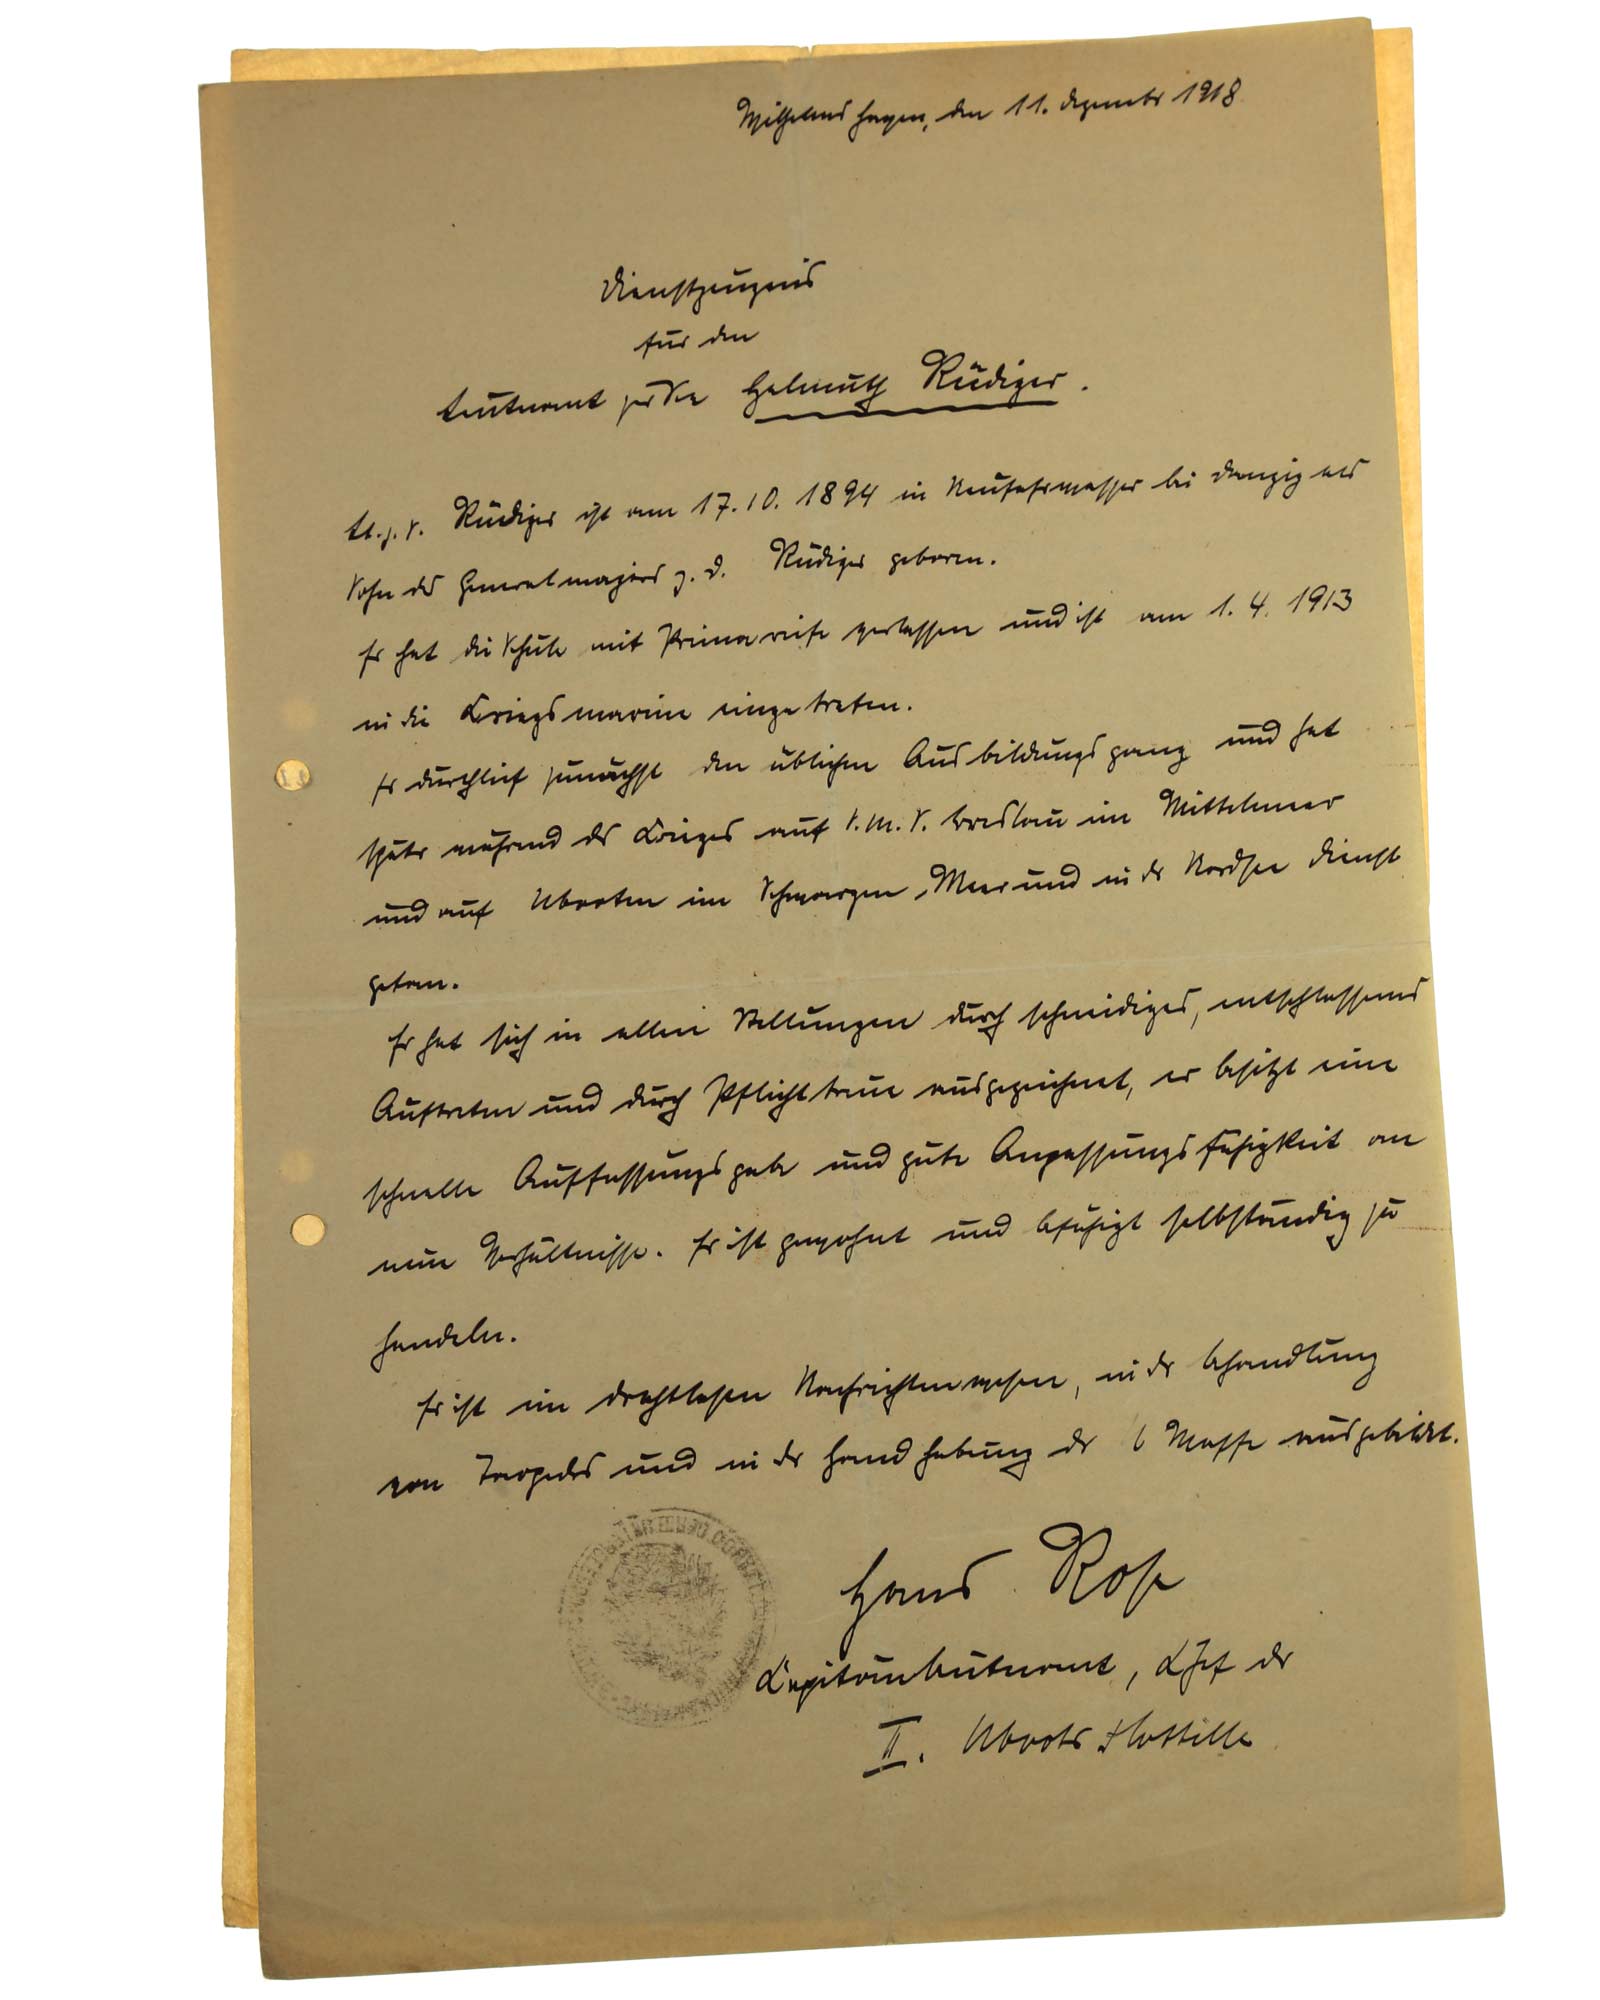 Wilhelmshaven, den 11. Dezember 1918
Dienstzeugnis
für den
Leutnant zur See Helmuth Rüdiger.
Lt. z. S. Rüdiger ist am 17. 10. 1894 in Neufahrwasser bei Danzig als
Sohn des Generalmajors z. D. Rüdiger geboren.
Er hat die Schule mit Primareife verlassen und ist am 1. 4. 1913
in die Kriegsmarine eingetreten.
Er durchlief zunächst den üblichen Ausbildungsgang und hat
später während des Krieges auf S. M. S. Breslau im Mittelmeer
und auf Ubooten im Schwarzen Meer und in der Nordsee Dienst
getan.
Er hat sich in allen Stellungen durch schneidiges, entschlossenes
Auftreten und durch Pflichttreue ausgezeichnet, er besitzt eine
schnelle Auffassungsgabe und gute Anpassungsfähigkeit an
neue Verhältnisse. Er ist gewohnt und befähigt selbständig zu
handeln.
Er ist im drahtlosen Nachrichtenwesen, in der Behandlung
von Torpedos und in der Handhabung der Waffe ausgebildet.
Hans Rose
Kapitänleutnant, Chef der
II. Uboots Flottille